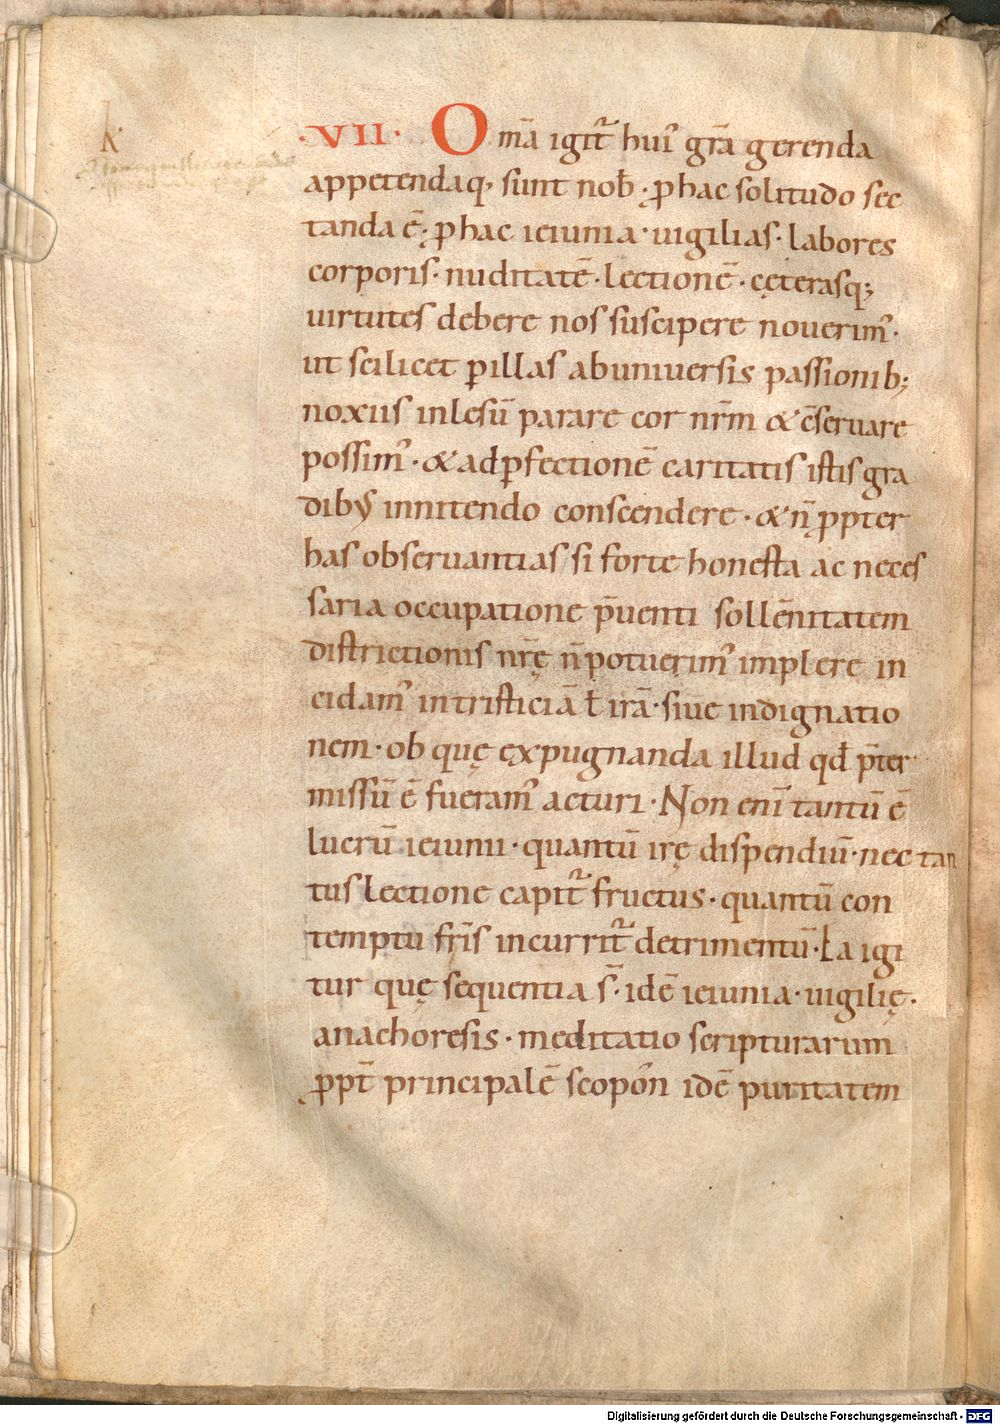 K
·VII· Omā igit᷑ huı᷒ grā gerenda
appetendaq; sunt nob̄· ꝓ hac solitudo sec
tanda ē· ꝓ hac ieiunia· uigilias· labores
corporis· nuditatē· lectionē· cęterasq;
uirtutes debere nos suscipere nouerim᷒·
ut scilicet ꝑ illas ab uniuersis passionib;
noxiis inlesū parare cor nr̄m & c̄seruare
possim᷒· & ad ꝑfectionē caritatis istis gra
dibus innitendo conscendere· & n̄ ꝓpter
has obseruantias si forte honesta ac neces
saria occupatione p̄uenti sollēnitatem
districtionis nr̄ę n̄ potuerim᷒ implere in
cidam᷒ in tristiciā ł irā· siue indignatio
nem· ob quę expugnanda illud qđ p̄ter
missū ē fueram᷒ acturi· Non enī tantū ē
lucrū ieiunii· quantū irę dispendiū· nec tan
tus lectione capit᷑ fructus· quantū con
temptu fr̄is incurrit᷑ detrimentū· Ea igi
tur quę sequentia s̄· idē ieiunia· uigilię·
anachoresis· meditatio scripturarum
ꝓpt̄ principalē scopon idē puritatem
Digitalisierung gefördert durch die Deutsche Forschungsgemeinschaft - DFG